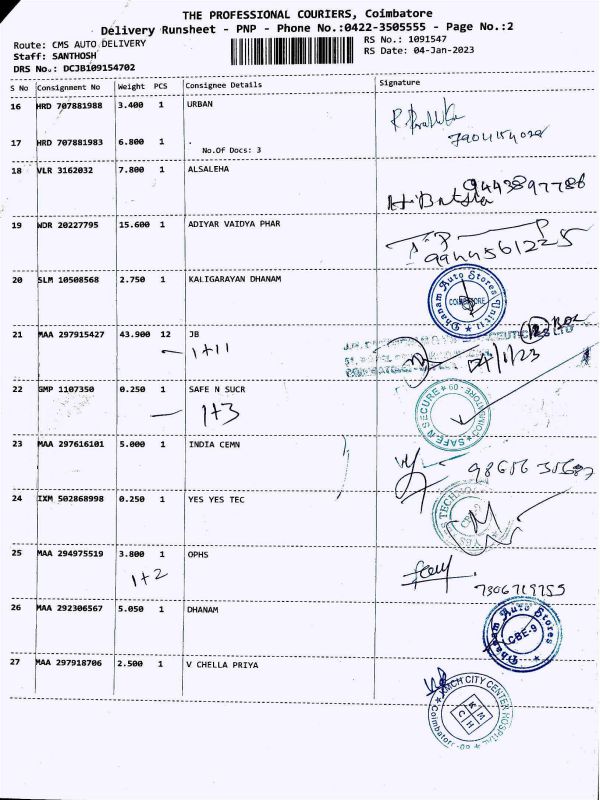 THE PROFESSIONAL COURIERS, Coimbatore
Delivery Runsheet - PNP - Phone No.:0422-3505555 - Page No.:2
Route: CMS AUTO DELIVERY
RS No.: 1091547
Staff: SANTHOSH
RS Date: 04-Jan-2023
DRS No.: DCJB109154702
S No Consignment No Weight PCS Consignee Details Signature
16 HRD 707881988 3.400 1 URBAN
17 HRD 707881983 6.800 1 .
No.Of Docs: 3
18 VLR 3162032 7.800 1 ALSALEHA
9443897786
19 WDR 20227795 15.600 1 ADIYAR VAIDYA PHAR
9944561225
20 SLM 10508568 2.750 1 KALIGARAYAN DHANAM
Dhanam Auto Stores Unit II
COIMBATORE
21 MAA 297915427 43.900 12 JB
1+11
04/1/23
22 GMP 1107350 0.250 1 SAFE N SUCR
1+3
SAFE N SECURE COIMBATORE - 09
23 MAA 297616101 5.000 1 INDIA CEMN
24 IXM 502868998 0.250 1 YES YES TEC
25 MAA 294975519 3.800 1 OPHS
1+2
26 MAA 292306567 5.050 1 DHANAM
Dhanam Auto Stores
CBE-9
27 MAA 297918706 2.500 1 V CHELLA PRIYA
KMCH CITY CENTER HOSPITAL
KMCH
Coimbatore